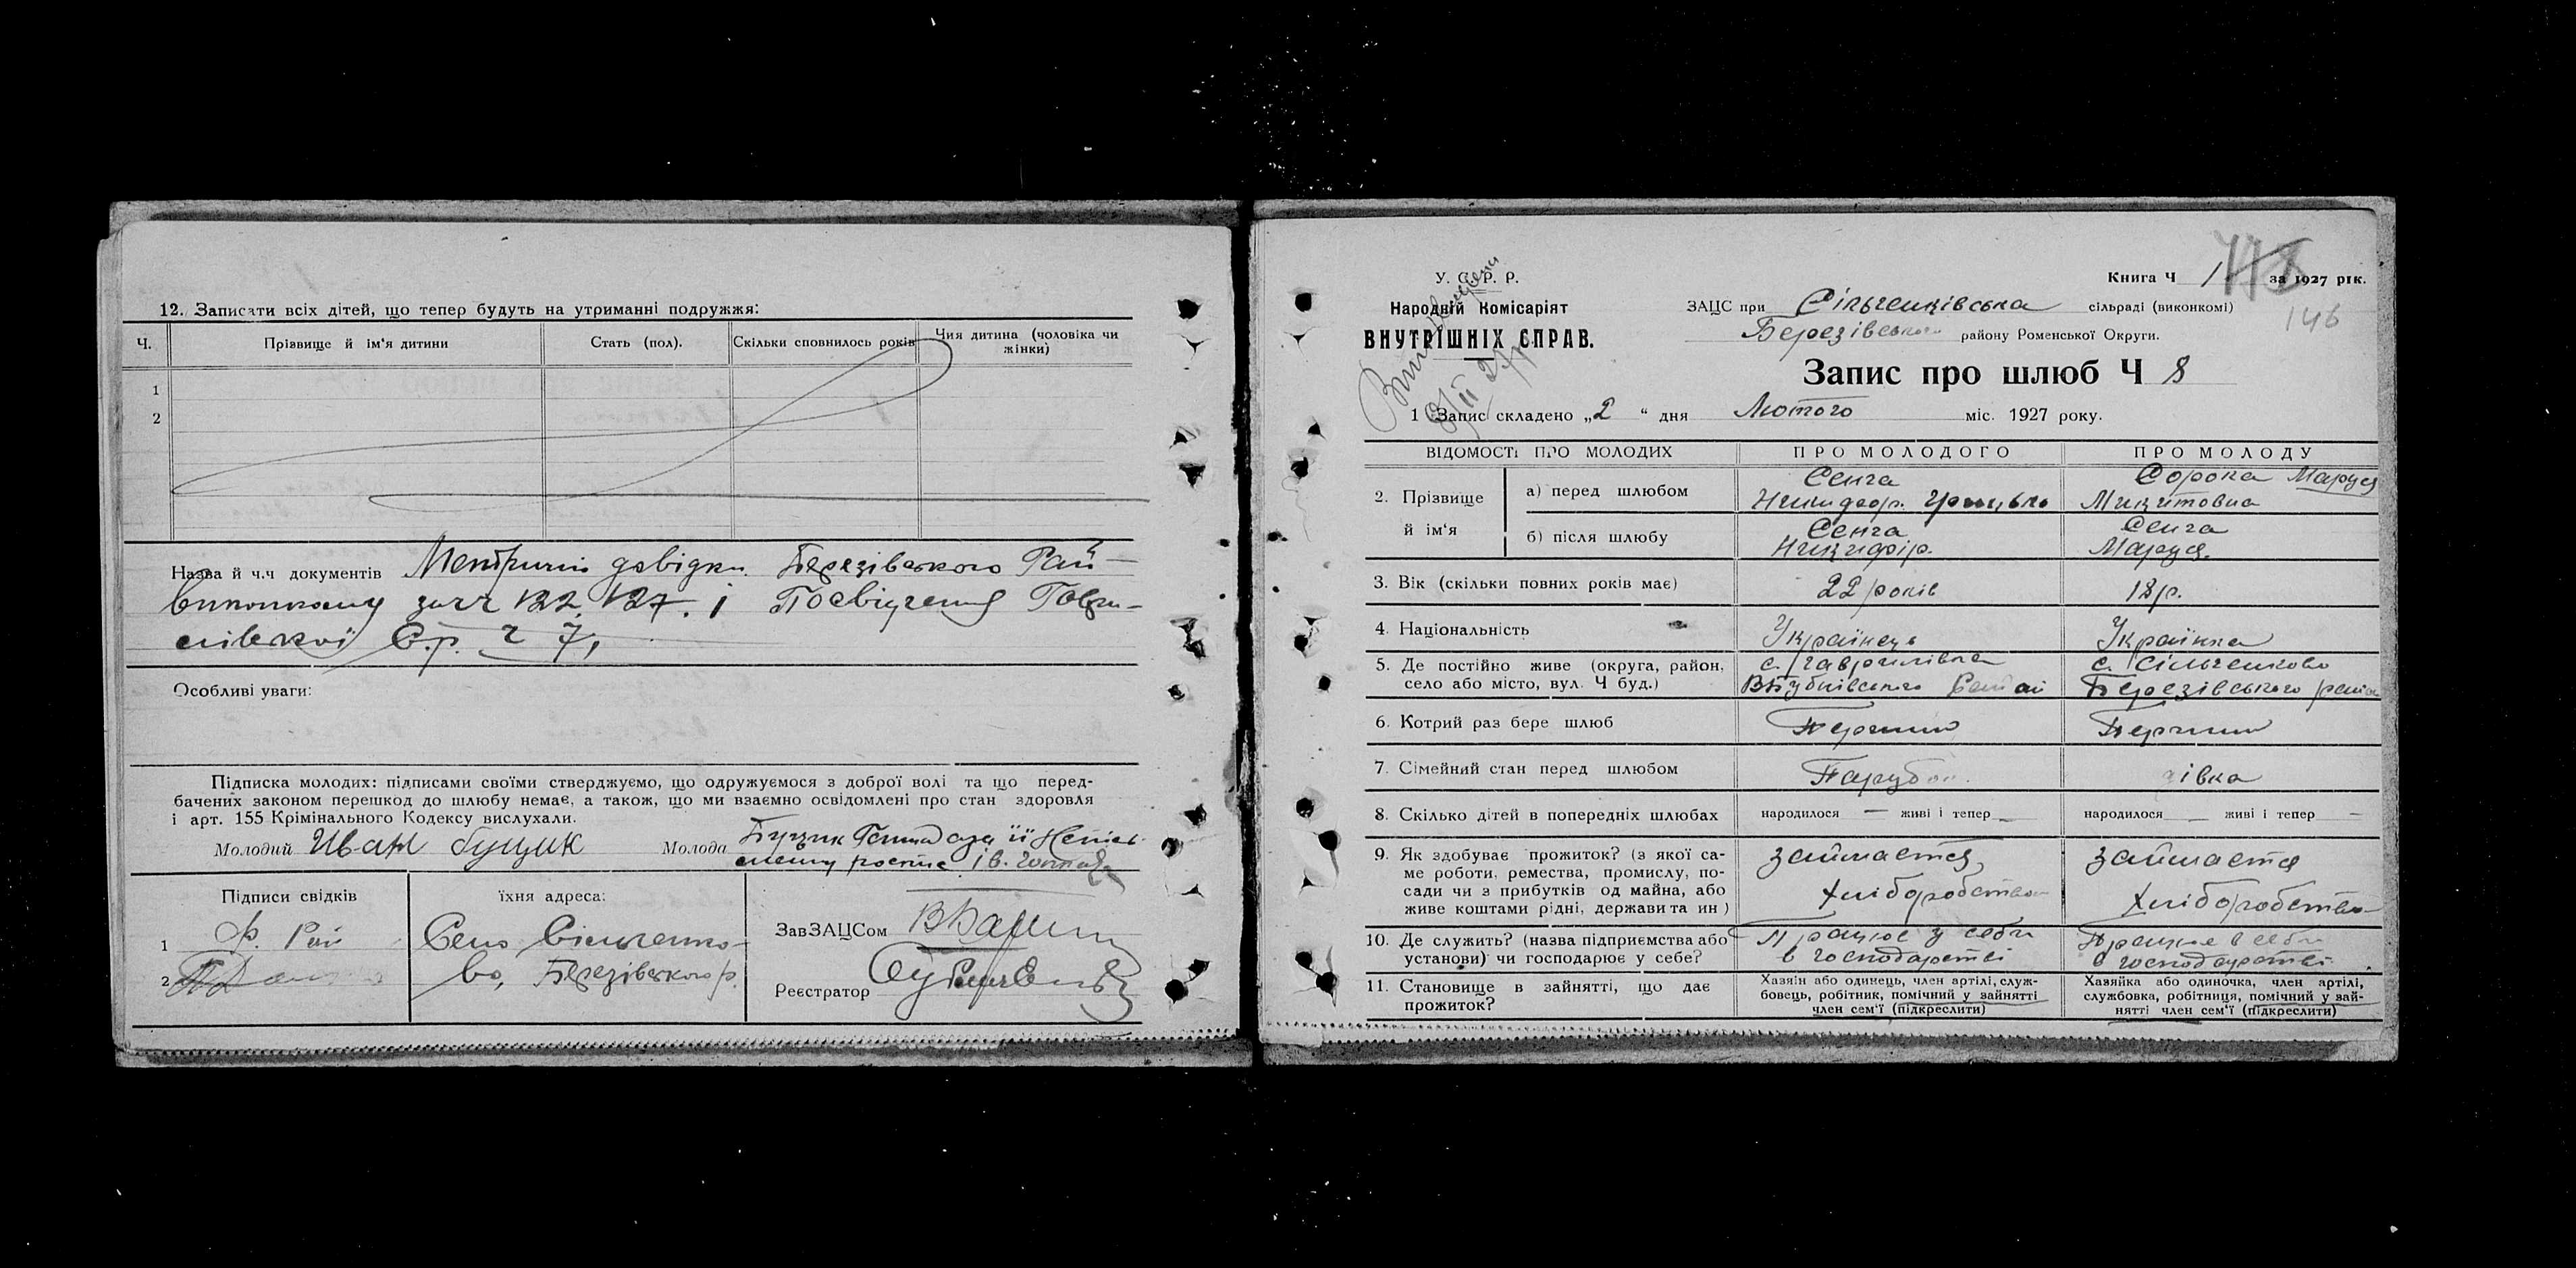 12. Записати всіх дітей, що тепер будуть на утриманні подружжя:
Ч. Прізвище й ім'я дитини Стать (пол). Скільки сповнилось років Чия дитина (чоловіка чи жінки)
1
2
Назва й ч.ч документів Метричні довідки Березівського Рай-
виконкому за чч 122, 127. і Посвідчення Гаври-
лівської С.р. ч 7,
Особливі уваги:
Підписка молодих: підписами своїми стверджуємо, що одружуємося з доброї волі та що перед-
бачених законом перешкод до шлюбу немає, а також, що ми взаємно освідомлені про стан здоровля
і арт. 155 Крімінального Кодексу вислухали.
Молодий Иван буцик Молода Буцик
Підписи свідків їхня адреса:
1 Ф. Рой Село Сільченко-
2 во, Березівського р.
ЗавЗАЦСом
Реєстратор
У. С. Р. Р.
Народній Комісаріят
ВНУТРІШНІХ СПРАВ.
Книга Ч 1 за 1927 рік.
146
ЗАЦС при Сільченківська сільраді (виконкомі)
Березівського району Роменської Округи.
Запис про шлюб Ч 8
1 Запис складено „2“ дня Лютого міс. 1927 року.
ВІДОМОСТІ ПРО МОЛОДИХ ПРО МОЛОДОГО ПРО МОЛОДУ
2. Прізвище й ім'я
а) перед шлюбом Сенга Грицько Сорока Маруся Микитовна
б) після шлюбу Сенга Никифір. Сенга Маруся.
3. Вік (скільки повних років має) 22 років 18 р.
4. Національність Українець Українка
5. Де постійно живе (округа, район, с. Гаврилівка с. Сільченково
село або місто, вул. Ч буд.) Березівського району
6. Котрий раз бере шлюб Перший Перший
7. Сімейний стан перед шлюбом Парубок дівка
8. Скілько дітей в попередніх шлюбах народилося — живі і тепер — народилося — живі і тепер —
9. Як здобуває прожиток? (з якої са- займається займается
ме роботи, ремества, промислу, по-
сади чи з прибутків од майна, або хліборобством хліборобством
живе коштами рідні, держави та ин)
10. Де служить? (назва підприємства або Працює у себе Працює в себе
установи) чи господарює у себе? в господарстві в господарстві.
11. Становище в зайнятті, що дає прожиток?
Хазяїн або одинець, член артілі, служ-
бовець, робітник, помічний у зайнятті
член сем'ї (підкреслити)
Хазяйка або одиночка, член артілі,
службовка, робітниця, помічний у зай-
нятті член сем'ї (підкреслити)